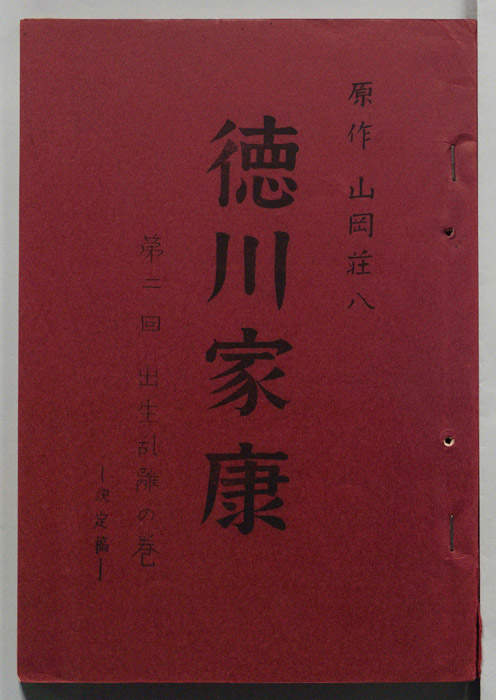 原作 山岡荘八
徳川家康
第二回 出生乱離の巻
—決定稿—